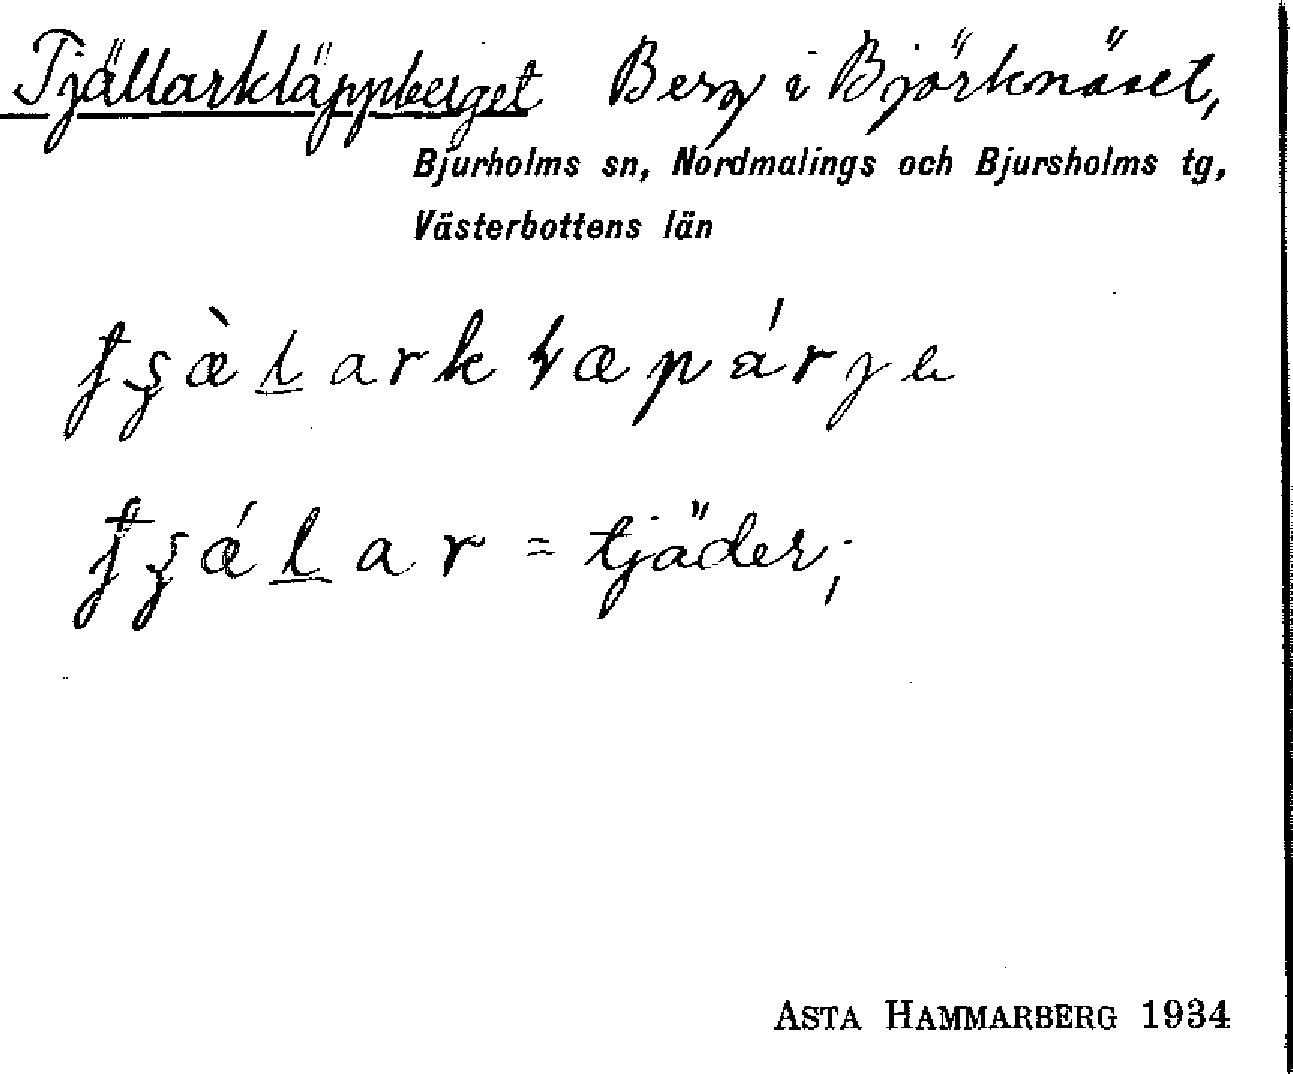 Tjällarkläppberget Berg i Björknäset,
Bjurholms sn, Nordmalings och Bjursholms tg,
Västerbottens län
= tjäder;
ASTA HAMMARBERG 1934